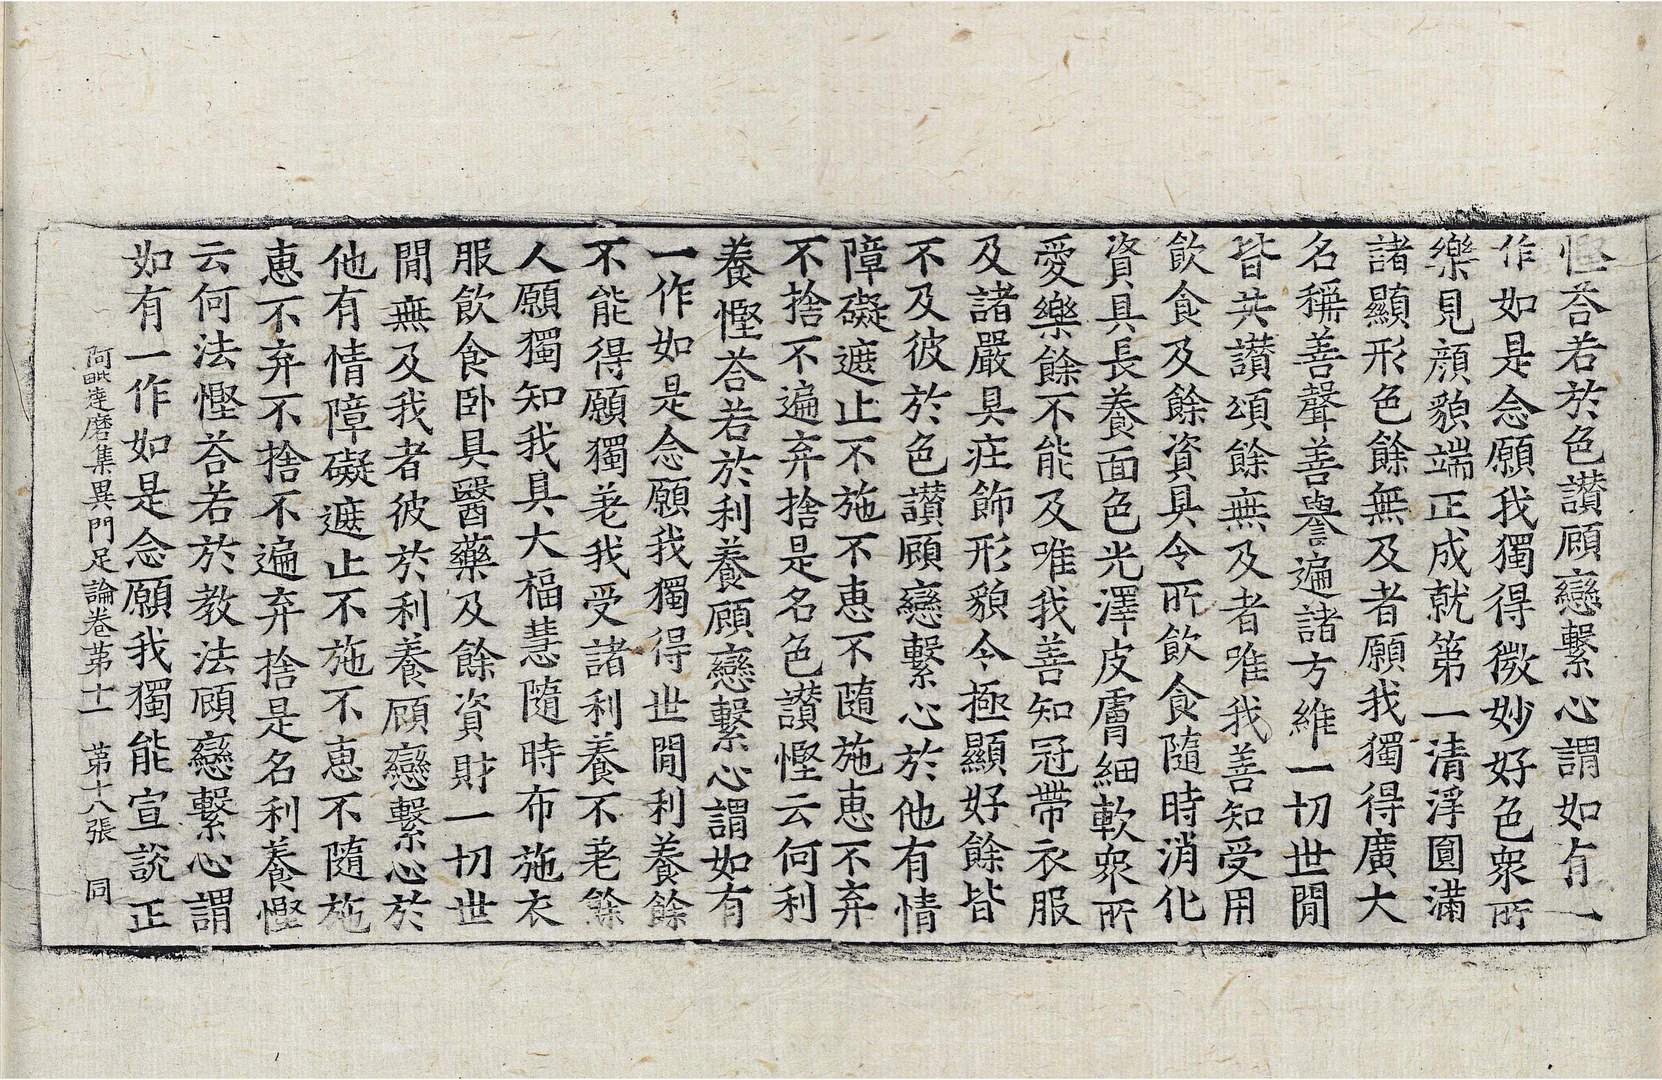 慳荅若於色讃頋戀繫心謂如有一
作如是念願我獨得微妙好色衆所
樂見顔貌端正成就第一清浮圓滿
諸顯形色餘無及者願我獨得廣大
名稱善聲善譽遍諸方維一切世閒
皆共讃頌餘無及者唯我善知受用
飲食及餘資具令所飲食隨時消化
資具長養面色光澤皮膚細軟衆所
愛樂餘不能及唯我善知冠帶衣服
及諸嚴具莊飾形貌令極顯好餘皆
不及彼於色讃頋戀繫心於他有情
障礙遮止不施不惠不隨施惠不弃
不捨不遍弃捨是名色讃慳云何利
養慳荅若於利養顧戀繫心謂如有
一作如是念願我獨得世閒利養餘
不能得願獨老我受諸利養不老餘
人願獨知我具大福慧隨時布施衣
服飲食卧具醫藥及餘資財一切世
閒無及我者彼於利養頋戀繫心於
他有情障礙遮止不施不惠不隨施
惠不弃不捨不遍弃捨是名利養慳
云何法慳荅若於教法頋戀繫心謂
如有一作如是念願我獨能宣説正
阿毗達磨集異門足論卷第十一 第十八張 同